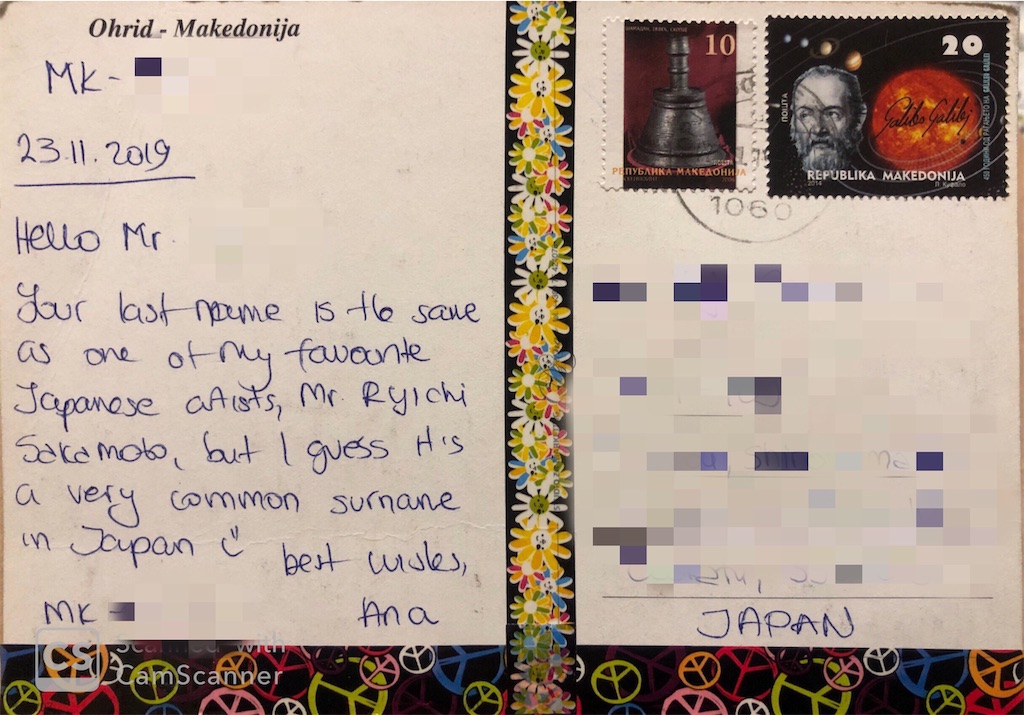 Ohrid - Makedonija
MK-
23.11.2019
Hello Mr.
Your last name is the same
as one of my favourite
Japanese artists, Mr. Ryichi
Sakamoto, but I guess it's
a very common surname
in Japan
best wishes,
MK
Ana
10
РЕПУБЛИКА МАКЕДОНИЈА
20
ПОШТА
Galileo Galilej
450 ГОДИНИ ОД РАЃАЊЕТО НА GALILEO GALILEI
REPUBLIKA MAKEDONIJA
2014
1060
JAPAN
CS
Scanned with
CamScanner